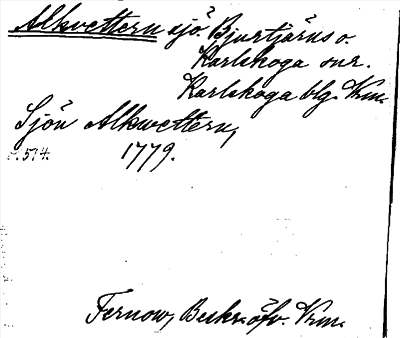 Alkvettern sjö. Bjurtjärns o.
Karlskoga snr.
Karlskoga blg. Vrm.
Sjön Alkwettern,
s. 574. 1779.
Fernow, Beskr. öfv. Vrm.